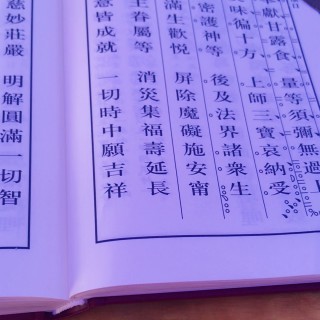 獻甘露食 量等須彌無過上
味徧十方 上師三寶哀納受
密護神等 後及法界諸眾生
滿生歡悅 屏除魔礙施安甯
主眷屬等 消災集福壽延長
意皆成就 一切時中願吉祥
慈妙莊嚴 明解圓滿一切智